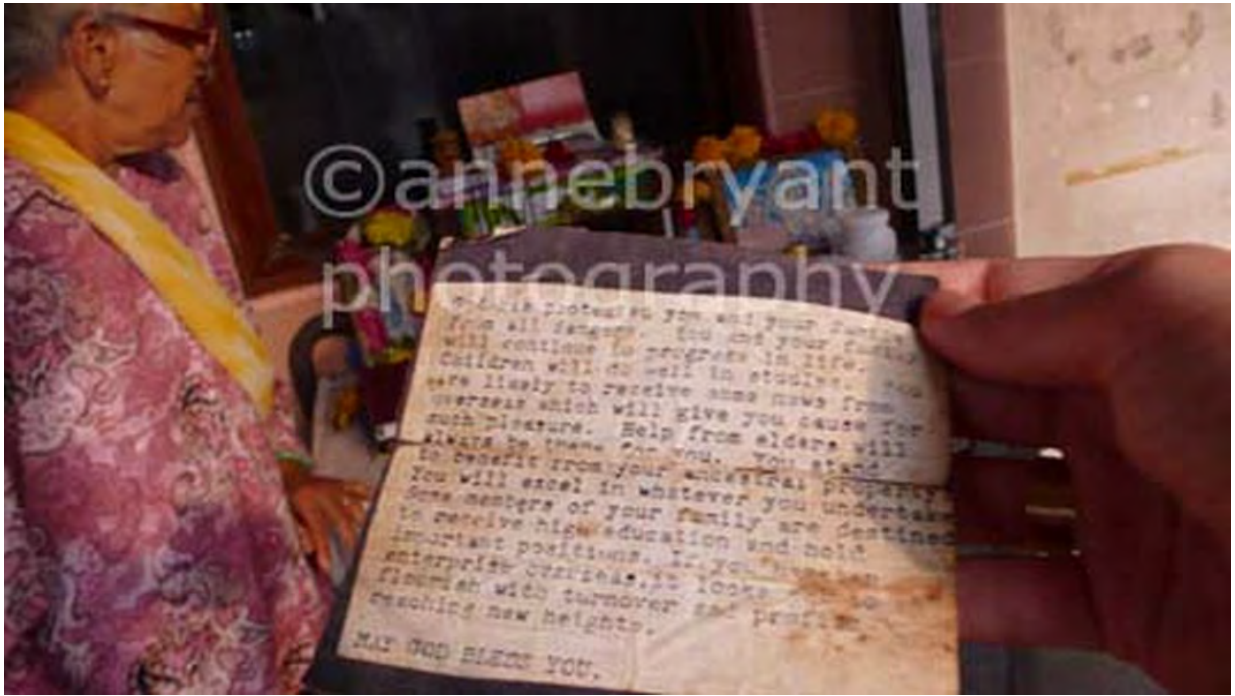 ©annebryant
photography
you and your
from all dangers. You and your family
will continue to progress in life.
Children will do well in studies. You
are likely to receive some news from
overseas which will give you cause for
such pleasure. Help from elders will
always be there for you. You stand
to benefit from your ancestral property.
You will excel in whatever you undertake
Some members of your family are destined
to receive high education and hold
important positions. If you
enterprise looks
flourish with turnover and profits
reaching new heights.
MAY GOD BLESS YOU.